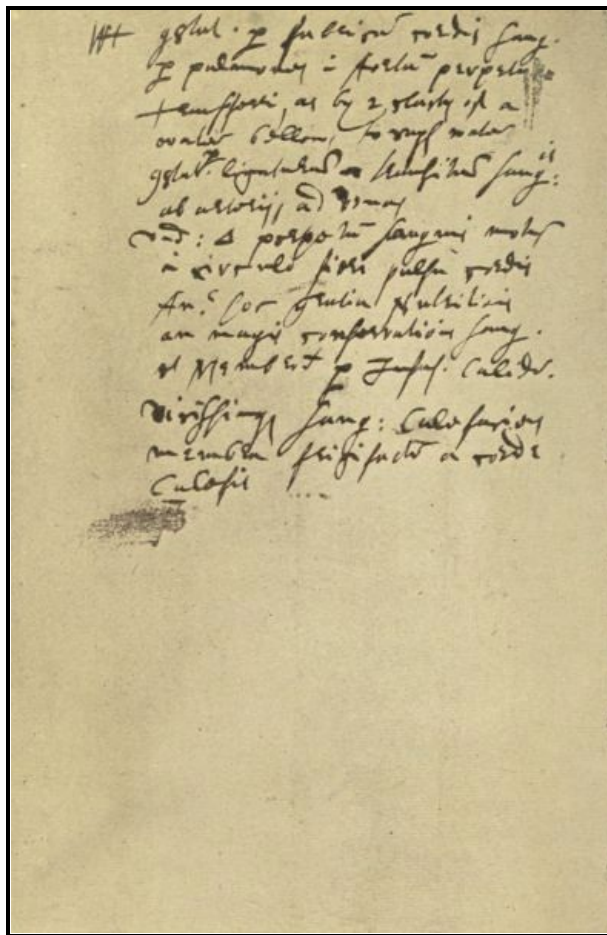 WH constat · p fabricam cordis sang.
p pulmones i Aortam perpetuo
transferri, as by 2 clacks of a
water bellows to rays water
constat p ligaturam transitum sang:is
ab arterijs ad venas
und: Δ perpetuum sanguinis motum
i circulo fieri pulsu cordis
An? hoc gratia Nutritionis
an magis conservationis sang.
et Membrorum p Infus: Calidam.
vicissimque sang: Calefaciens
membra frigifactum a corde
Calefit ....